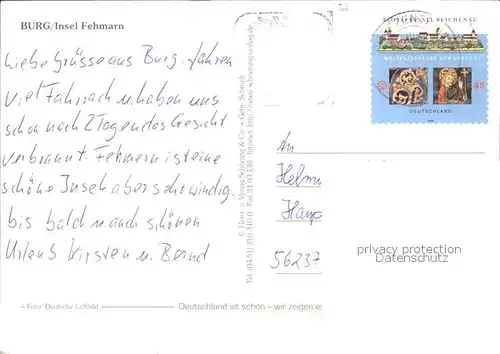 BURG/Insel Fehmarn
liebe Grüsse aus Burg. fahren
viel Fahrrach u. haben uns
schon nach 2 Tagen das Gesicht
verbrannt. Fehmern ist eine
schöne Insel aber sehr windig.
bis bald u. auch schönen
Urlaub Kirsten u. Bernd
Foto: Deutsche Luftbild
Deutschland ist schön – wir zeigen es
© Horst u. Verlag Schöning & Co. + Gebr. Schmidt
KLOSTERINSEL REICHENAU
WELTKULTURERBE DER UNESCO
45
DEUTSCHLAND
An
Helm
Hayo
56237
privacy protection
Datenschutz